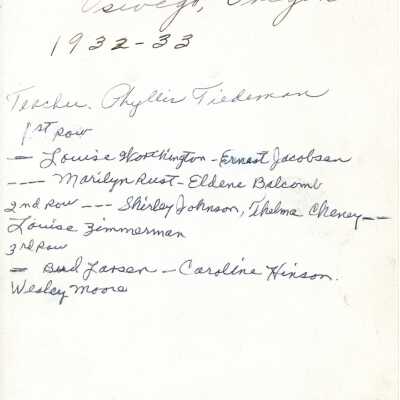 Oswego, Oregon
1932-33
Teacher. Phyllis Tiedeman
1st row
— Louise Worthington - Ernest Jacobsen
---- Marilyn Rust - Eldene Balcomb
2nd Row --- Shirley Johnson, Thelma Cheney --
Louise Zimmerman
3rd Row
= Bud Larsen - Caroline Hinson.
Wesley Moore